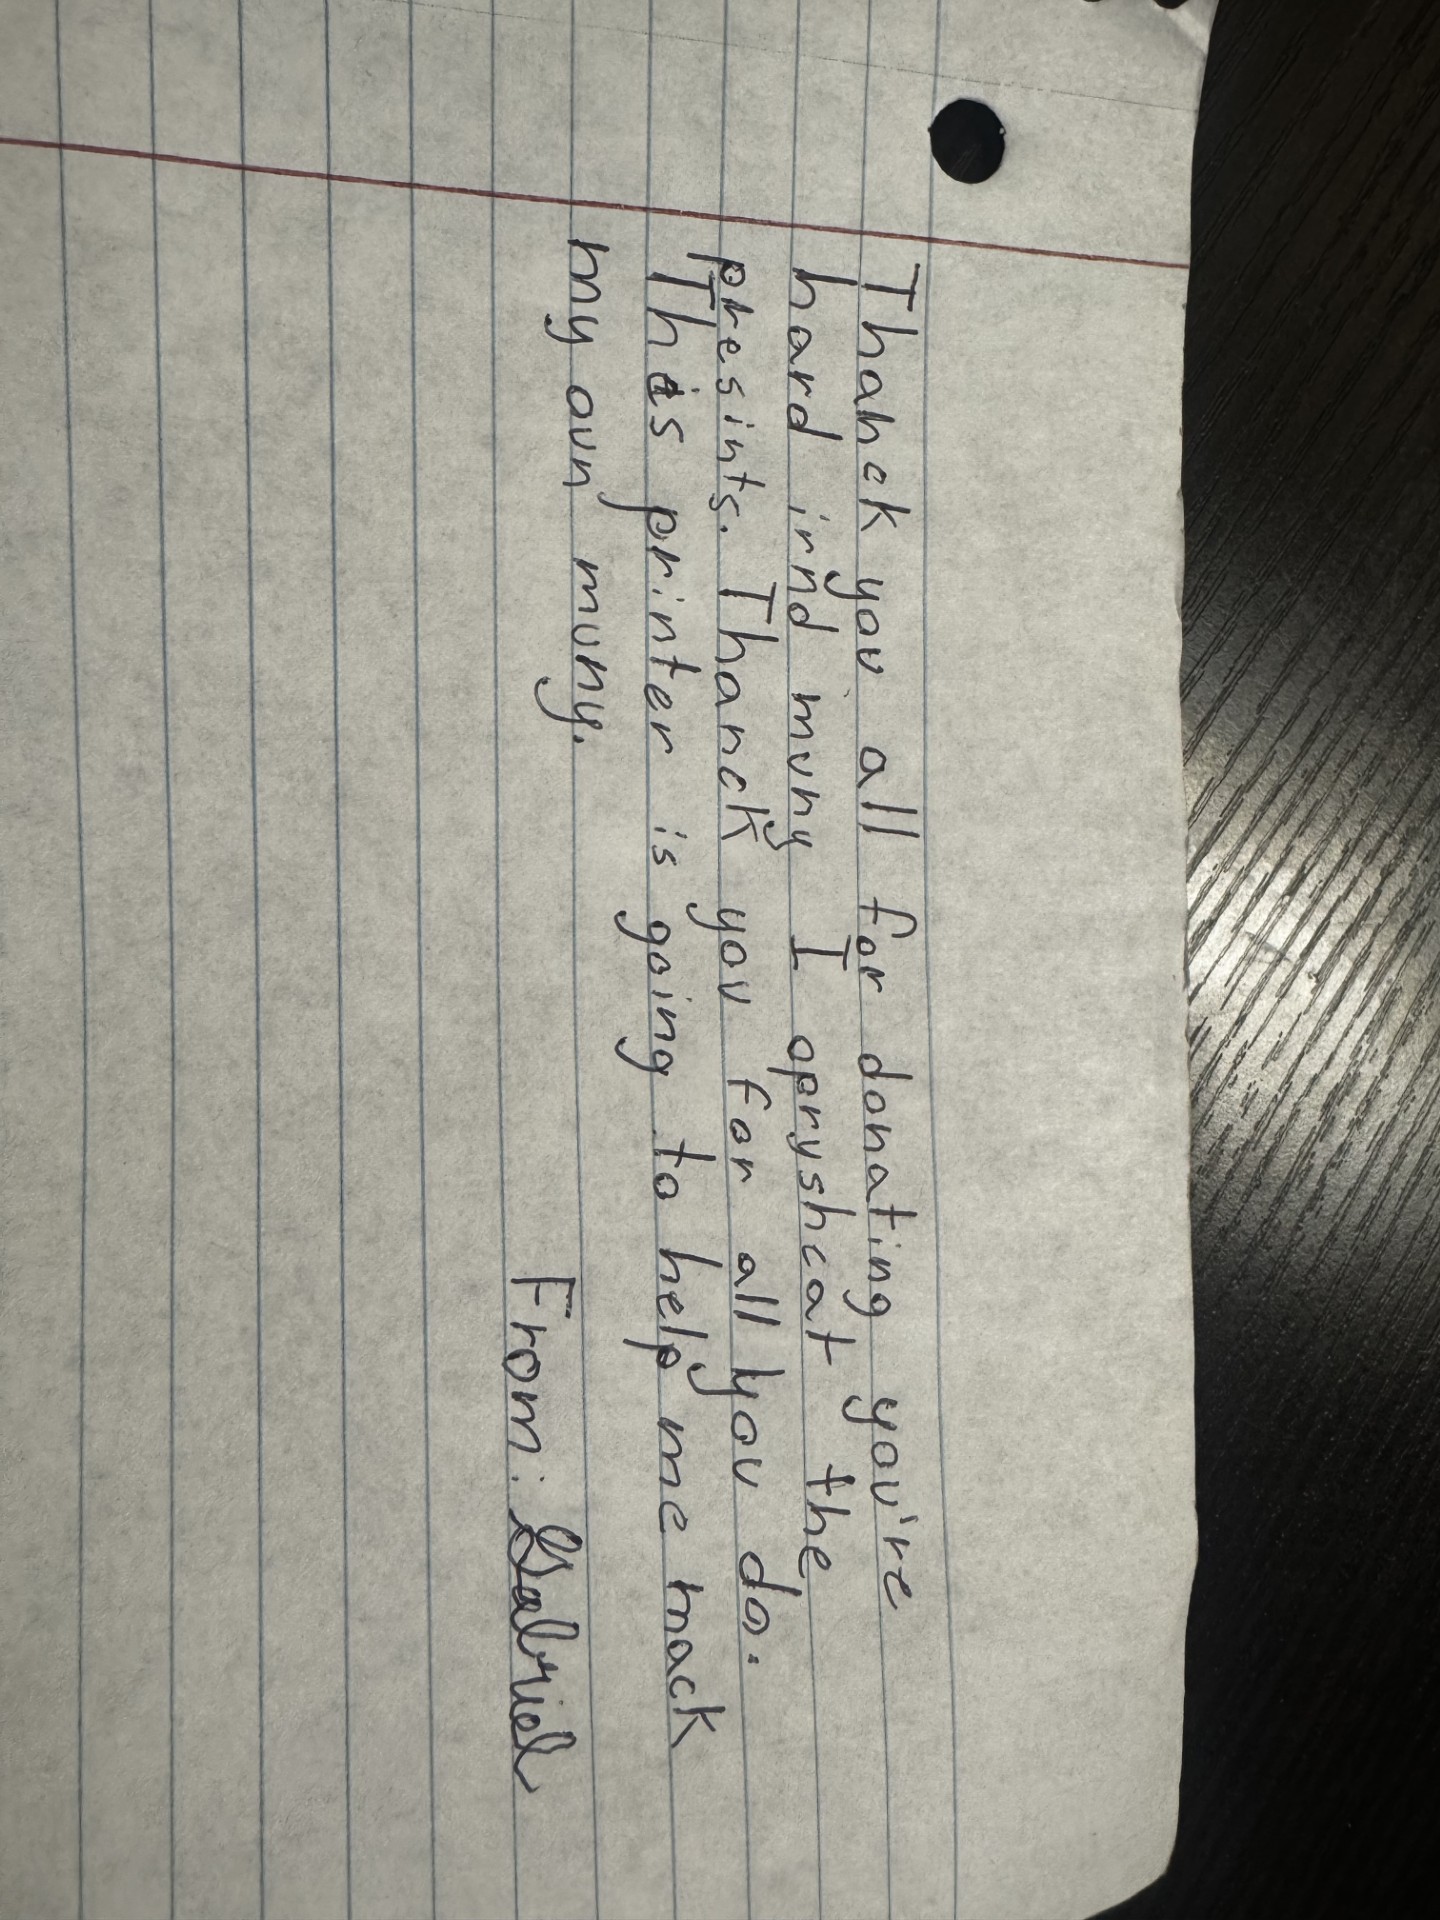 Thanck you all for donating you're
hard irnd muny I apryshcat the
presints. Thanck you for all you do.
This printer is going to help me mack
my oun muny.
From: Gabriel